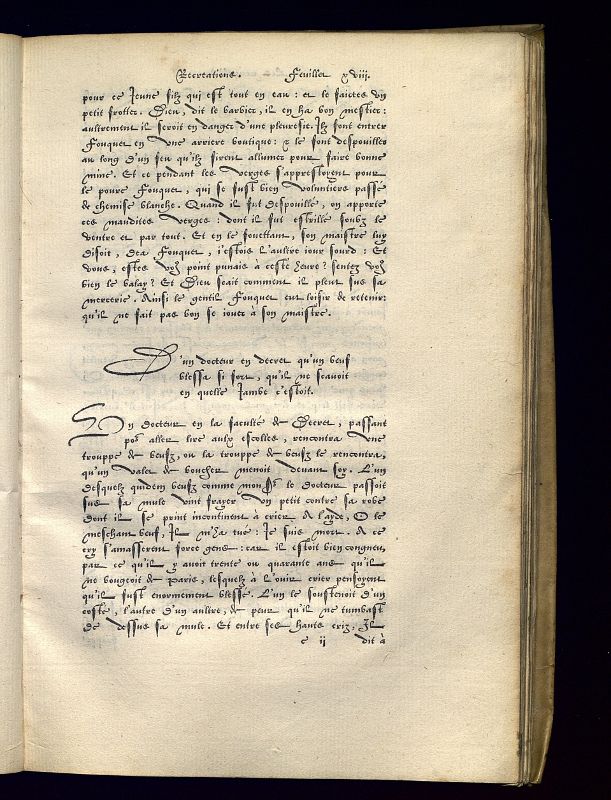 Recreations. Feuillet xviii.
pour ce Jeune filz qui est tout en eau: et le faictes un
petit frotter. Dieu, dit le barbier, il en ha bon mestier:
aultrement il seroit en danger d'une pleuresie. Ilz font entrer
Fouquet en une arriere boutique: & le font despouiller
au long d'un feu qu'ilz firent allumer pour faire bonne
mine. Et ce pendant les verges s'apprestoyent pour
le poure Fouquet, qui se fust bien voluntiers passé
de chemise blanche. Quand il fut despouillé, on apporte
ces maudites verges: dont il fut estrillé soubz le
ventre et par tout. Et en le fouettant, son maistre luy
disoit, dea Fouquet, i'estois l'aultre iour sourd: Et
vous, estes vo9 point punais à ceste heure? sentez vo9
bien le balay? Et Dieu scait comment il pleut sus sa
mercerie. Ainsi le gentil Fouquet eut loisir de retenir:
qu'il ne fait pas bon se iouer à son maistre.
D'un docteur en decret qu'un beuf
blessa si fort, qu'il ne scavoit
en quelle Jambe c'estoit.
Un docteur en la faculté de Decret, passant
po9 aller lire aulx escolles, rencontra une
trouppe de beufz, ou la trouppe de beufz le rencontra,
qu'un valet de boucher menoit devant soy. L'un
desquelz quidem beufz comme monsr le docteur passoit
sus sa mule vint frayer un petit contre sa robe
dont il se print incontinent à crier A l'ayde, O le
meschant beuf, Il m'ha tué: Je suis mort. A ce
cry s'amasserent force gens: car il estoit bien congneu,
par ce qu'il y avoit trente ou quarante ans qu'il
ne bougeoit de Paris, lesquelz à l'ouir crier pensoyent
qu'il fust enormement blessé. L'un le soustenoit d'un
costé, l'autre d'un aultre, de peur qu'il ne tumbast
de dessus sa mule. Et entre ses haults criz, Il
c ii dit à